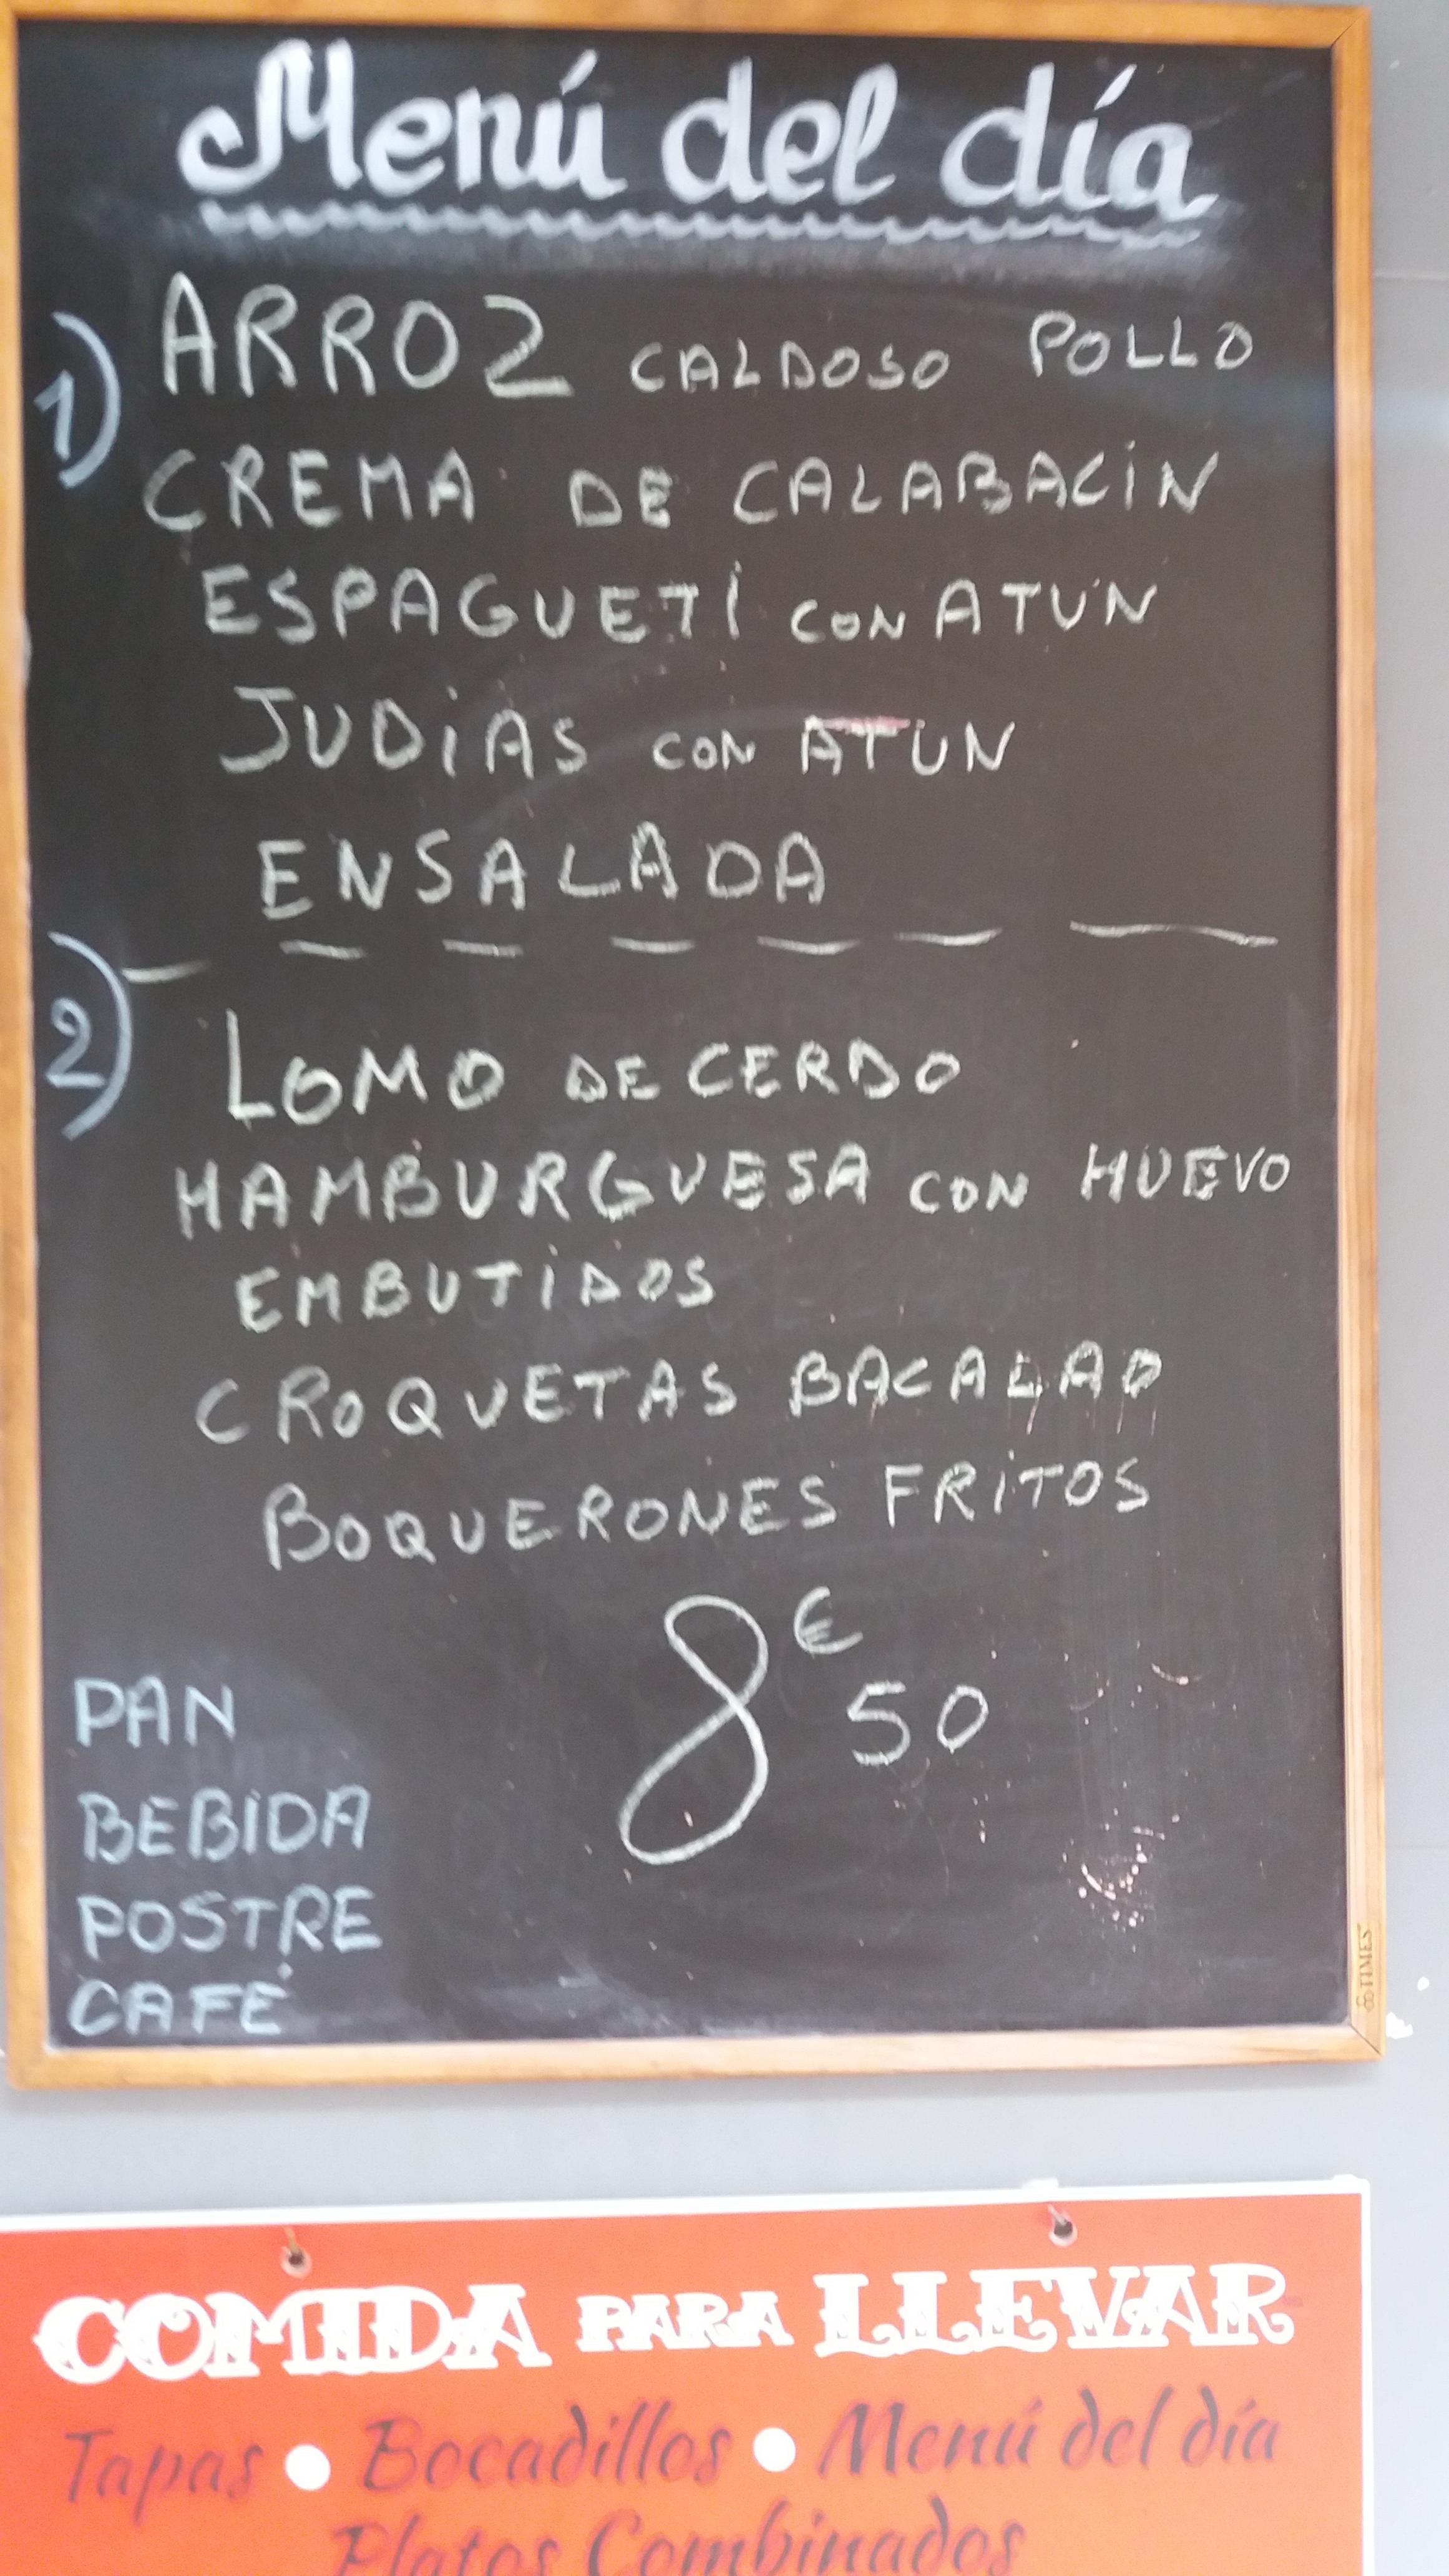 Menú del día
1) ARROZ CALDOSO POLLO
CREMA DE CALABACIN
ESPAGUETI CON ATUN
JUDIAS CON ATUN
ENSALADA
2) LOMO DE CERDO
HAMBURGUESA CON HUEVO
EMBUTIDOS
CROQUETAS BACALAO
BOQUERONES FRITOS
8€50
PAN
BEBIDA
POSTRE
CAFÉ
TIMES
COMIDA PARA LLEVAR
Tapas • Bocadillos • Menú del día
Platos Combinados